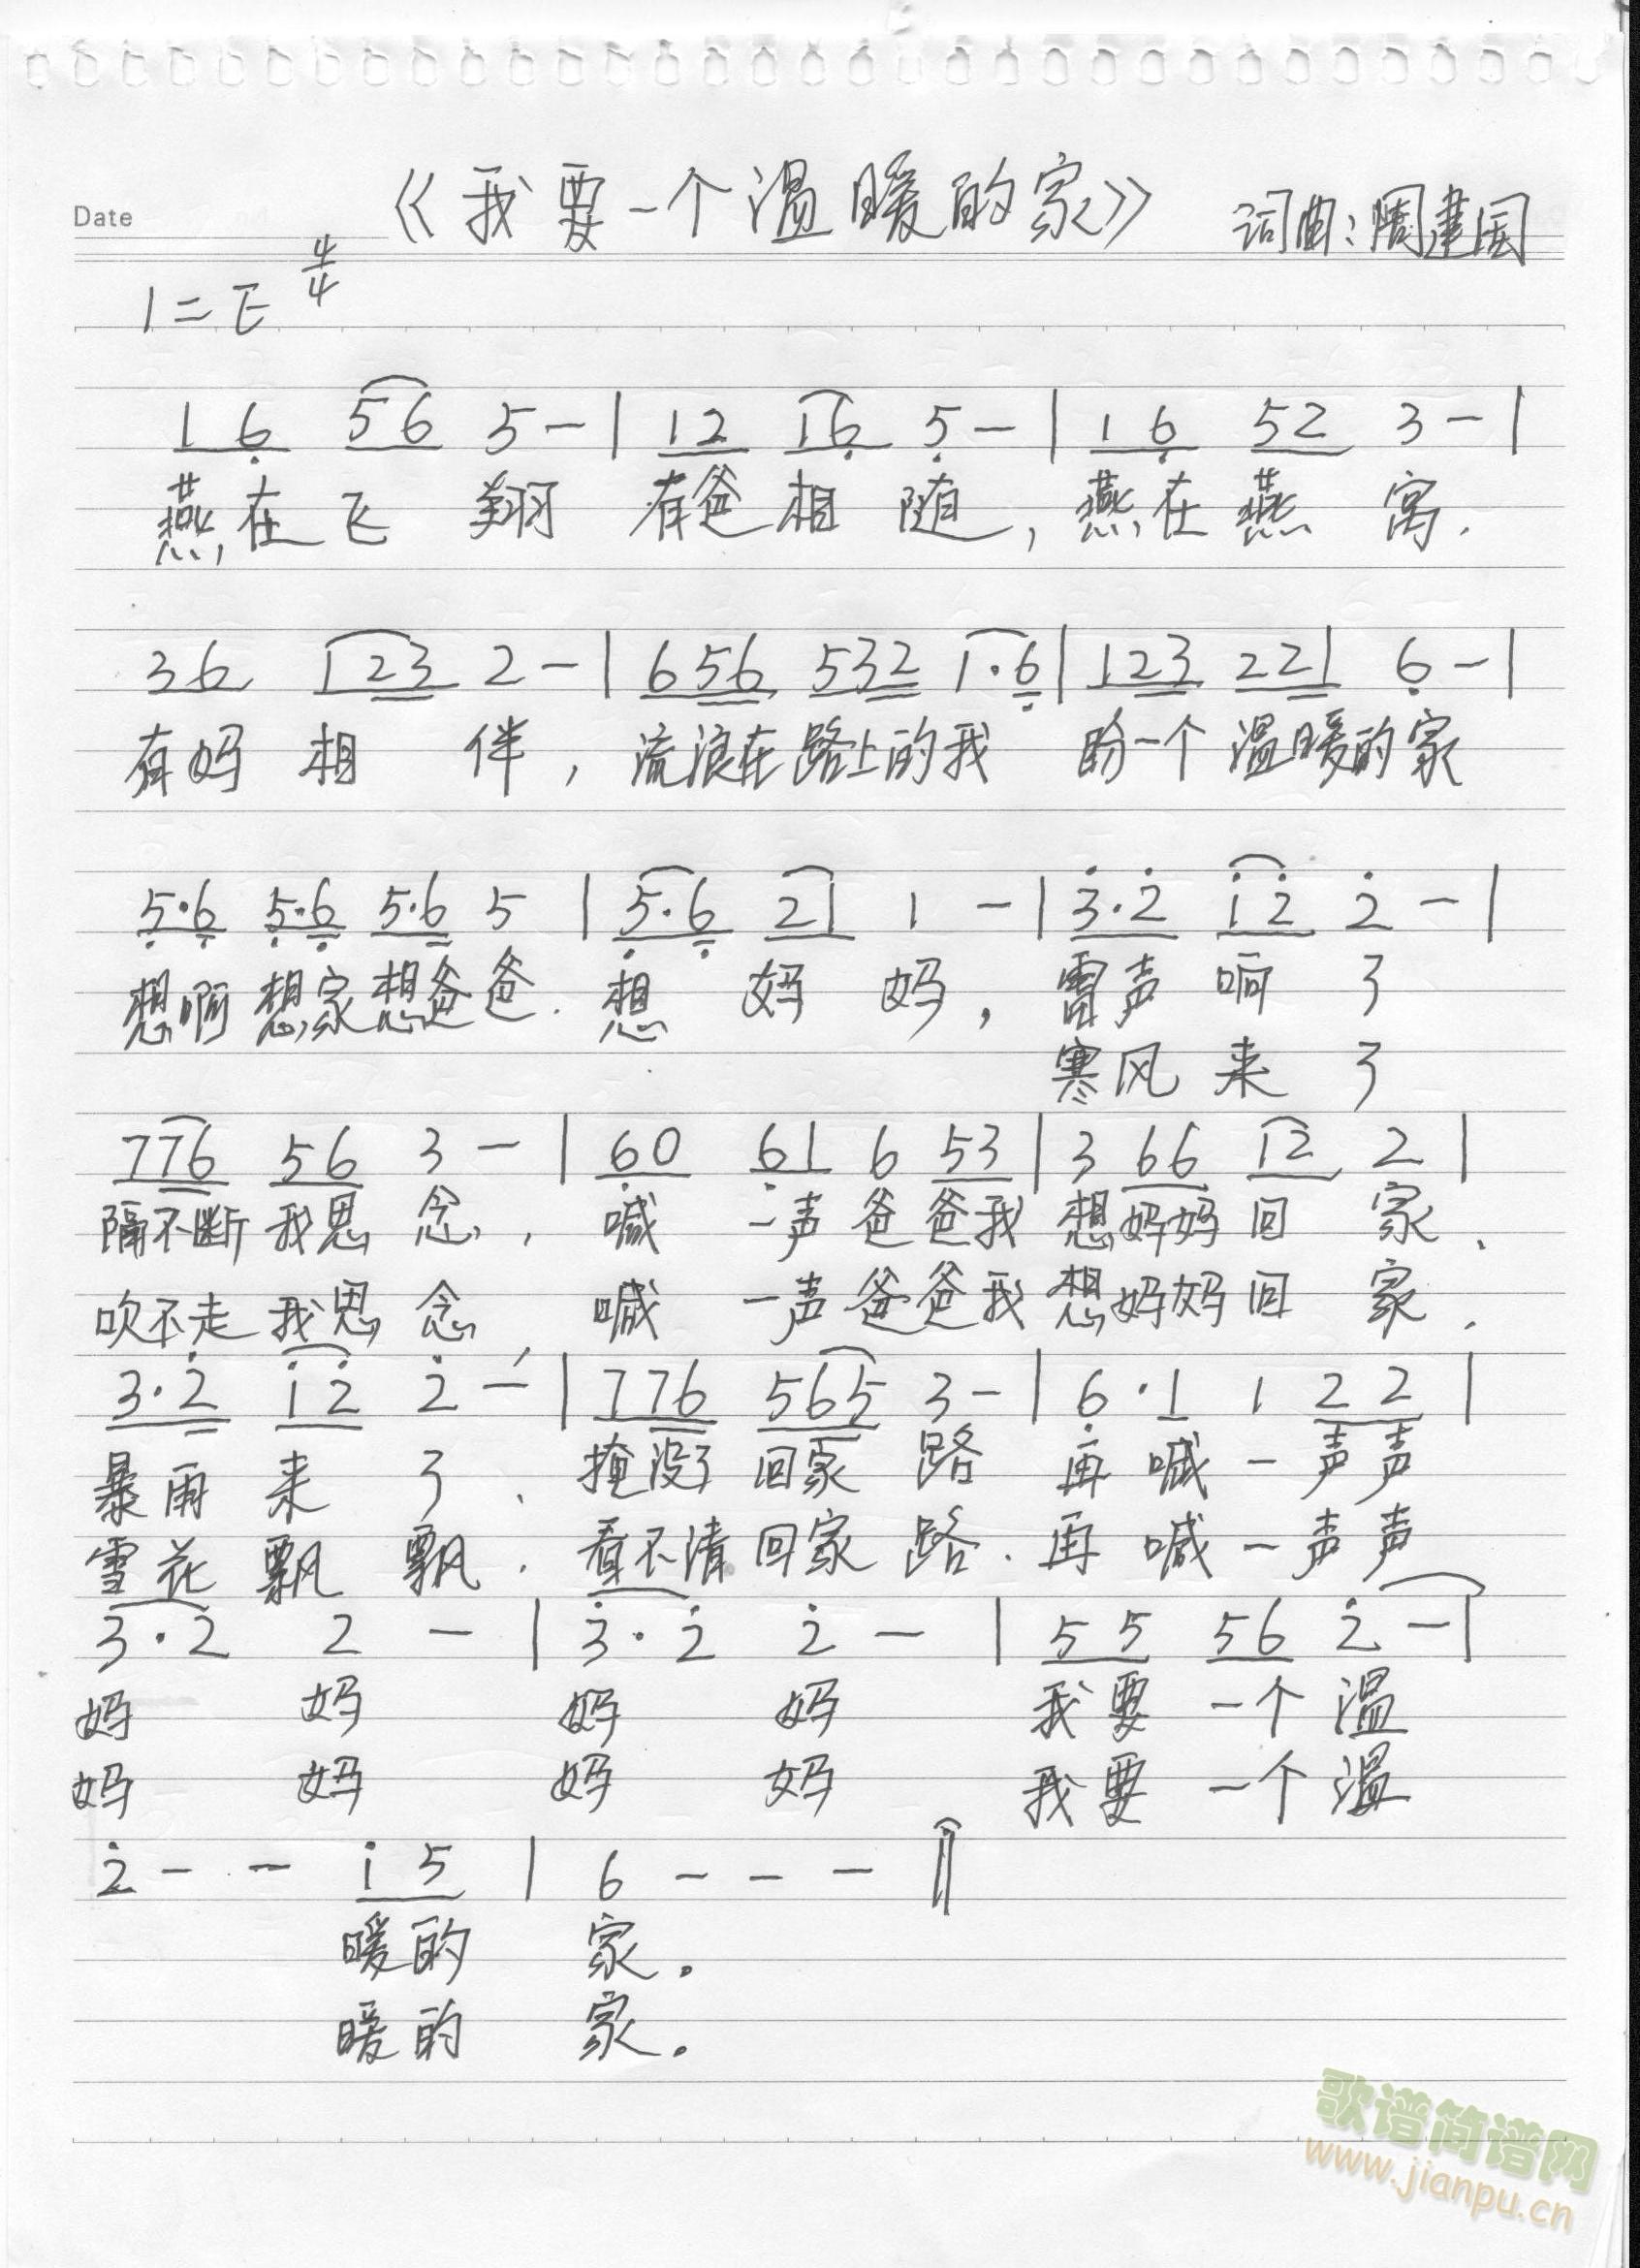 Date 《我要一个温暖的家》 词曲：周建国
1=E 4/4
1 6̣ 5 6 5 - | 1 2 1 6̣ 5̣ - | 1 6̣ 5 2 3 - |
燕在飞 翔 有爸相 随，燕在燕 窝.
3 6 1 2 3 2 - | 6 5 6 5 3 2 1 · 6̣ | 1 2 3 2 2 1 6̣ - |
有妈 相 伴，流浪在路上的我 盼一个 温暖的家
5̣·6̣ 5̣·6̣ 5·6 5 | 5̣·6̣ 2 1 1 - | 3̇·2̇ 1̇ 2̇ 2̇ - |
想啊 想家想爸爸. 想 妈 妈，雷声 响 了
寒风 来 了
7 7 6 5 6 3 - | 6̣ 0 6̣ 1 6 5 3 | 3 6 6 1 2 2 |
隔不断 我思 念，喊 一声爸爸我 想妈妈回 家、
吹不走 我思 念，喊 一声爸爸我 想妈妈回 家.
3·2̇ 1̇ 2̇ 2̇ - | 7 7 6 5 6 5 3 - | 6̣ · 1 1 2 2 |
暴雨 来 了、掩没了 回家 路 再 喊一声声
雪花 飘 飘. 看不清 回家 路. 再 喊一声声
3·2 2 - | 3̇·2̇ 2̇ - | 5 5 5 6 2̇ - |
妈 妈 妈 妈 我要 一个 温
妈 妈 妈 妈 我要 一个 温
2̇ - - 1̇ 5 | 6 - - - ‖
暖的 家。
暖的 家。
歌谱简谱网
www.jianpu.cn